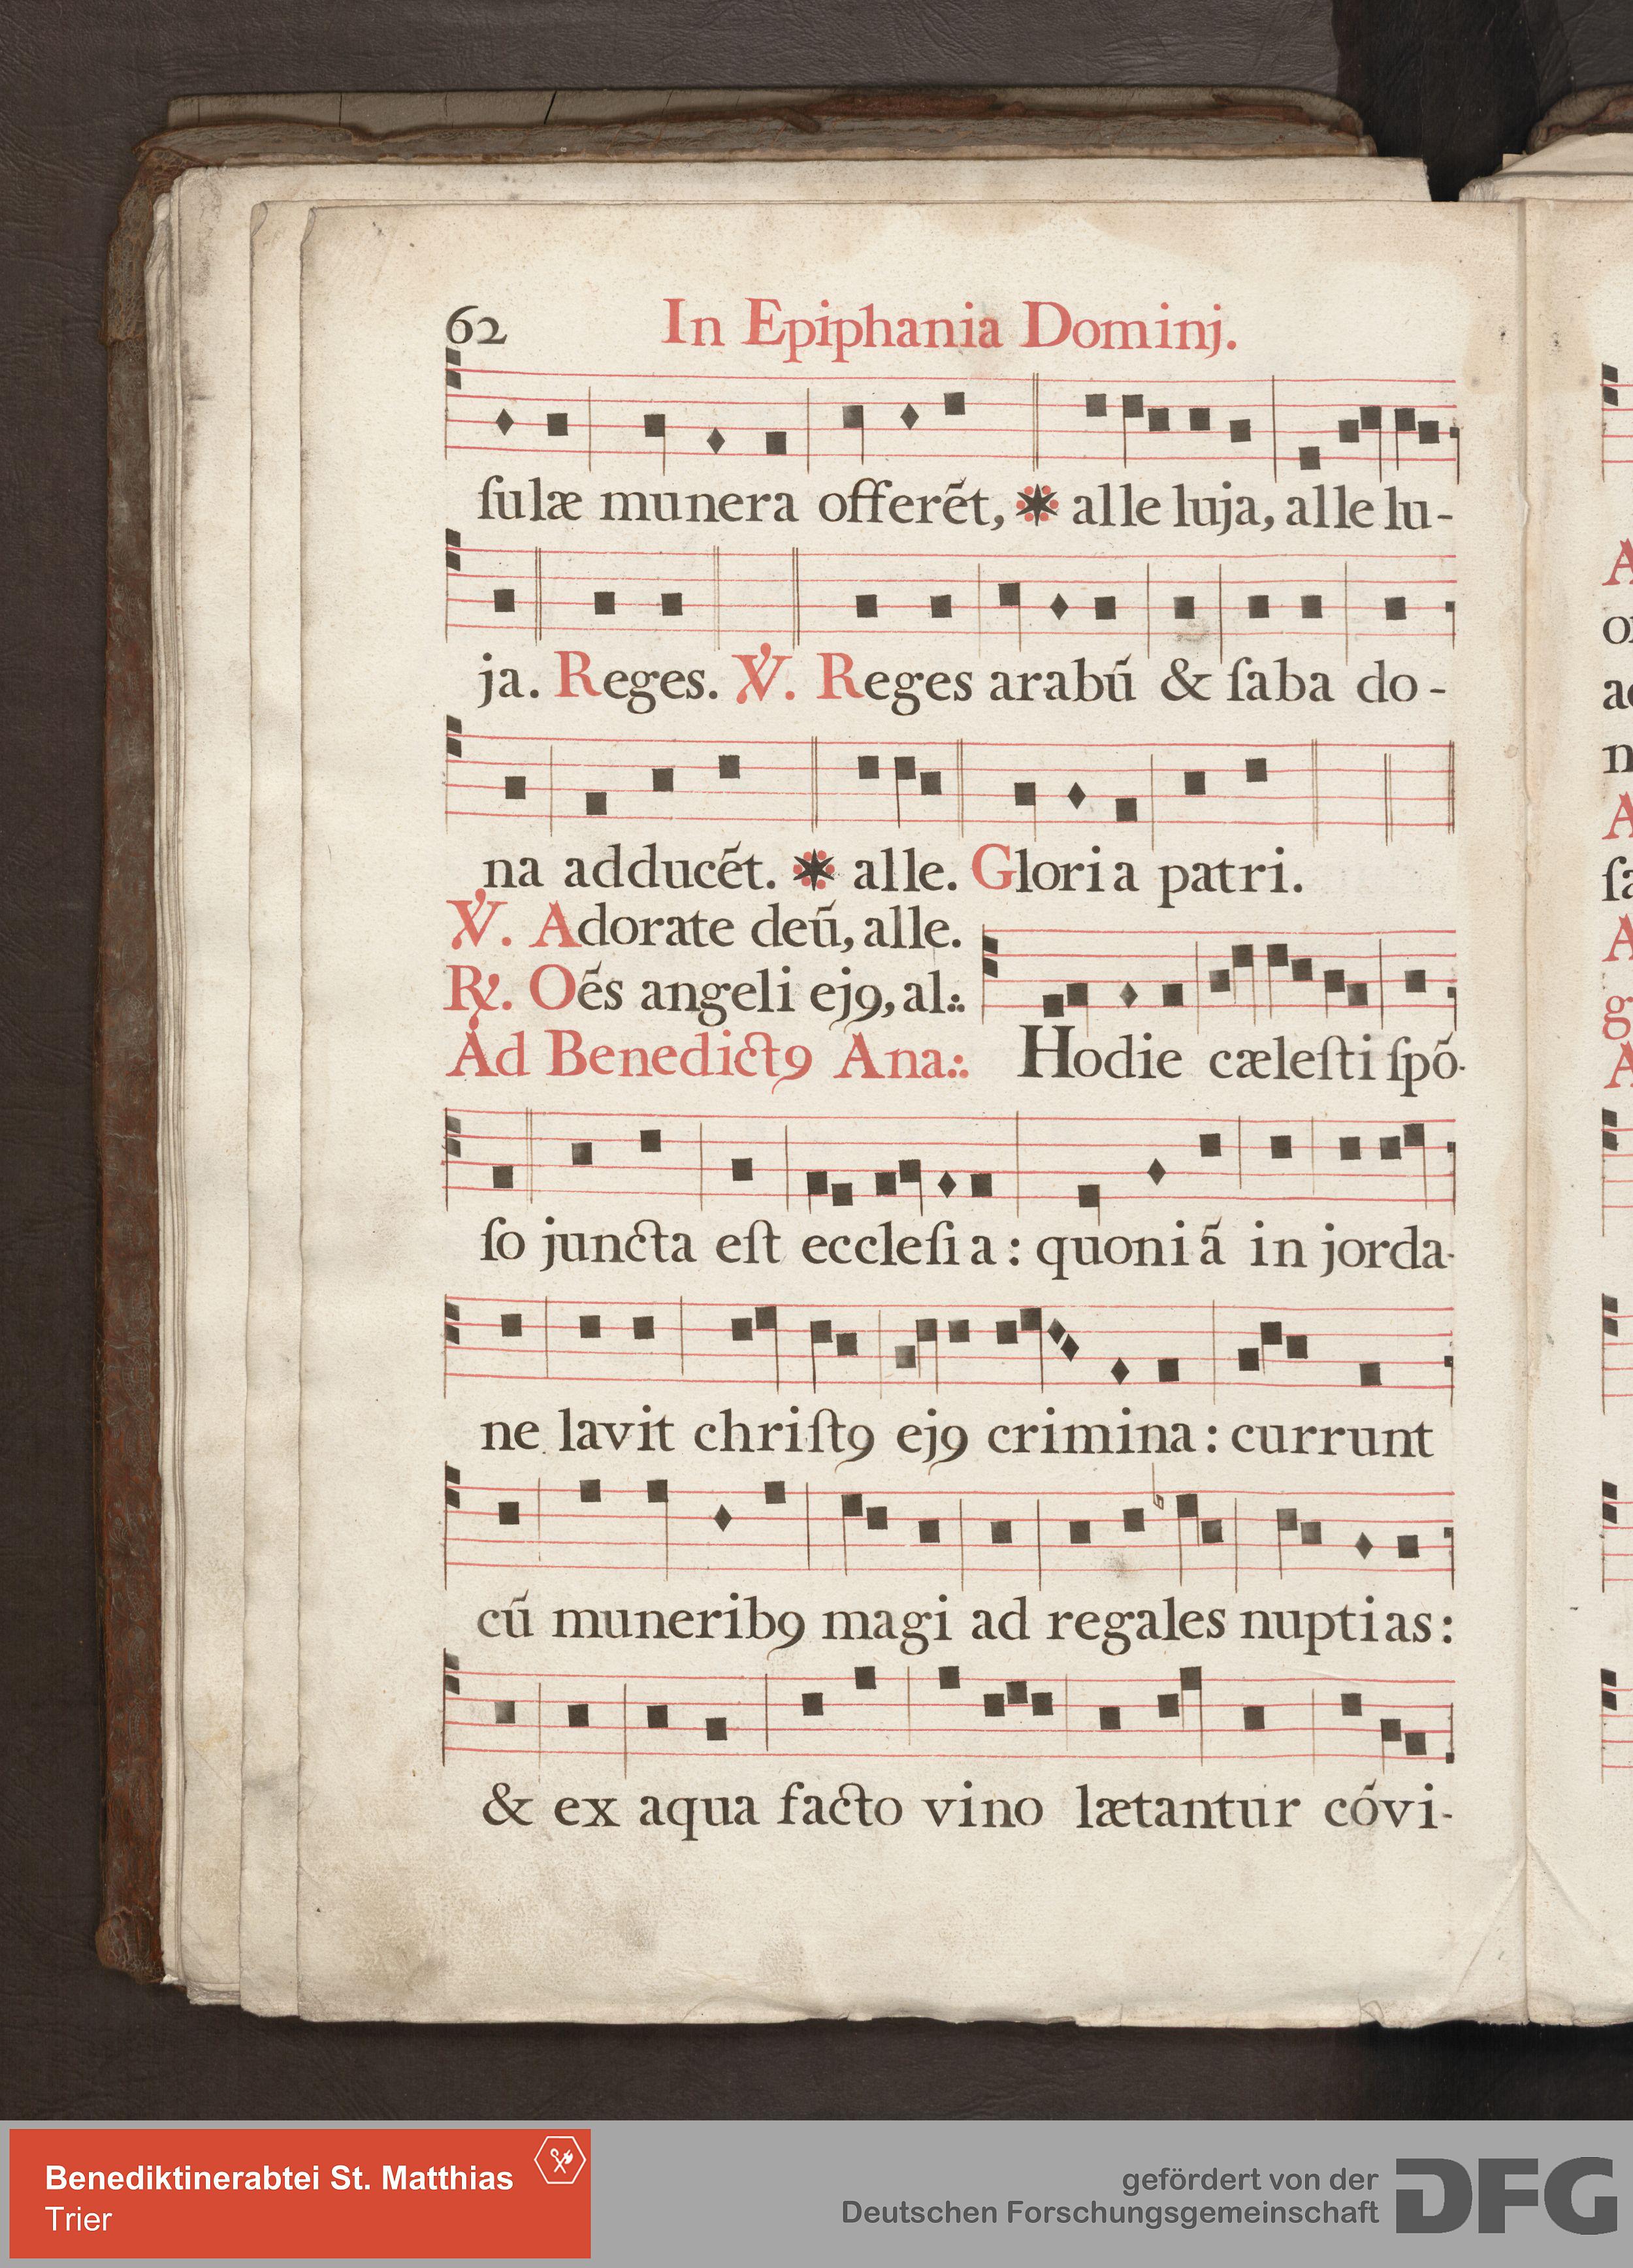 62 In Epiphania Dominj.
ſulæ munera offerẽt, ✷ alle luja, alle lu-
ja. Reges. ℣. Reges arabũ & ſaba do-
na adducẽt. ✷ alle. Gloria patri.
℣. Adorate deũ, alle.
℟. Oẽs angeli ejꝰ, al⁖
Ad Benedictꝰ Ana⁖ Hodie cæleſti ſpõ-
ſo juncta eſt eccleſia: quoniã in jorda-
ne lavit chriſtꝰ ejꝰ crimina: currunt
cũ muneribꝰ magi ad regales nuptias:
& ex aqua facto vino lætantur cõvi-
Benediktinerabtei St. Matthias
Trier
gefördert von der
Deutschen Forschungsgemeinschaft
DFG